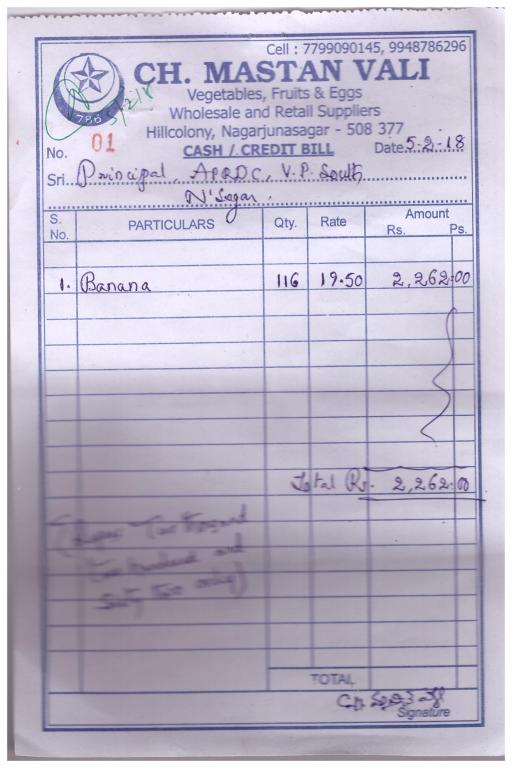 Cell : 7799090145, 9948786296
CH. MASTAN VALI
786
5/2/18
Vegetables, Fruits & Eggs
Wholesale and Retail Suppliers
Hillcolony, Nagarjunasagar - 508 377
No. 01 CASH / CREDIT BILL Date 5-2-18
Sri.. Principal, APRDC, V.P. South
N'Sagar.
S. No. PARTICULARS Qty. Rate Amount Rs. Ps.
1. Banana 116 19.50 2,262.00
Total Rs. 2,262.00
(Rupees Two thousand
two hundred and
Sixty two only)
TOTAL
Signature